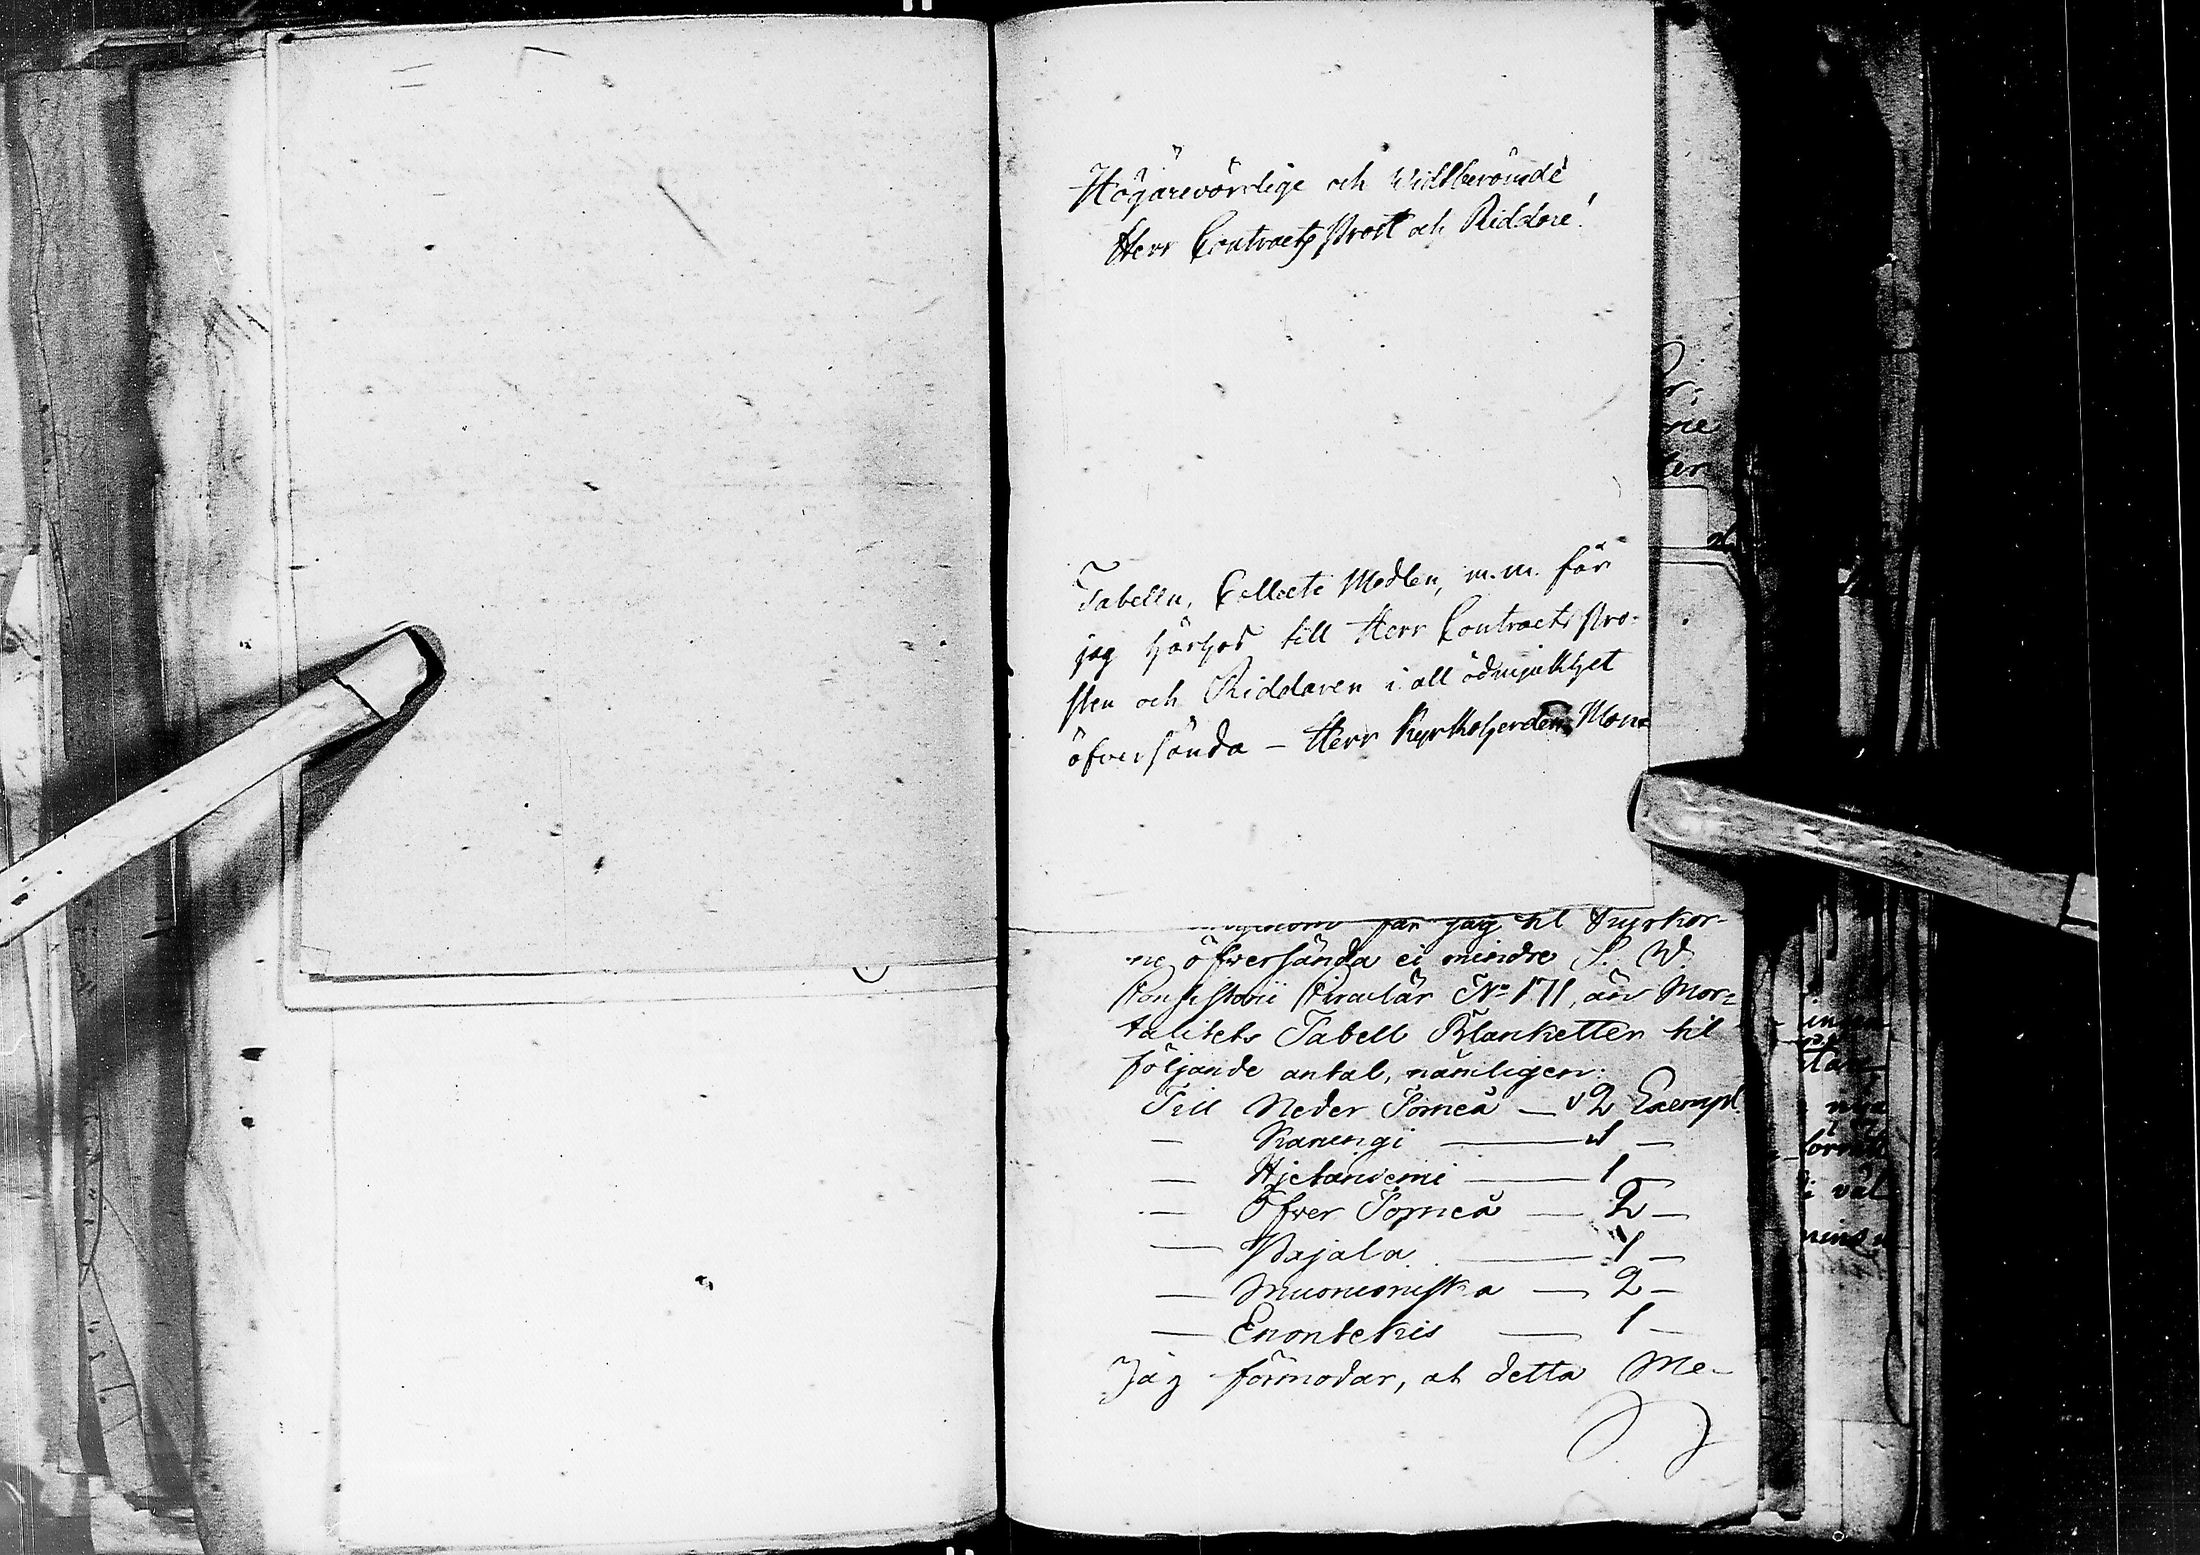 Högärevördige och Widtberömde
Herr Contracts Prost och Riddare!
Tabellen, Collect Medlen, m.m. får
jag härhos till Herr Contracts Pro-
sten och Riddaren i all ödmjukhet
öfversända – Herr Kyrkoherden
får jag til Kyrkor-
ne öfversända ej mindre S. W.
Consistorii Circulär No 171, än Mor-
talitets Tabell Blanketter til
följande antal, nämligen:
Till Neder Torneå — 2 Exempl.
— Karungi — 1 —
— Hjetaniemi — 1 —
— Öfver Torneå — 2 —
— Pajala — 1 —
— Muonioniska — 2 —
— Enontekis — 1 —
Jag förmodar, at detta Me-